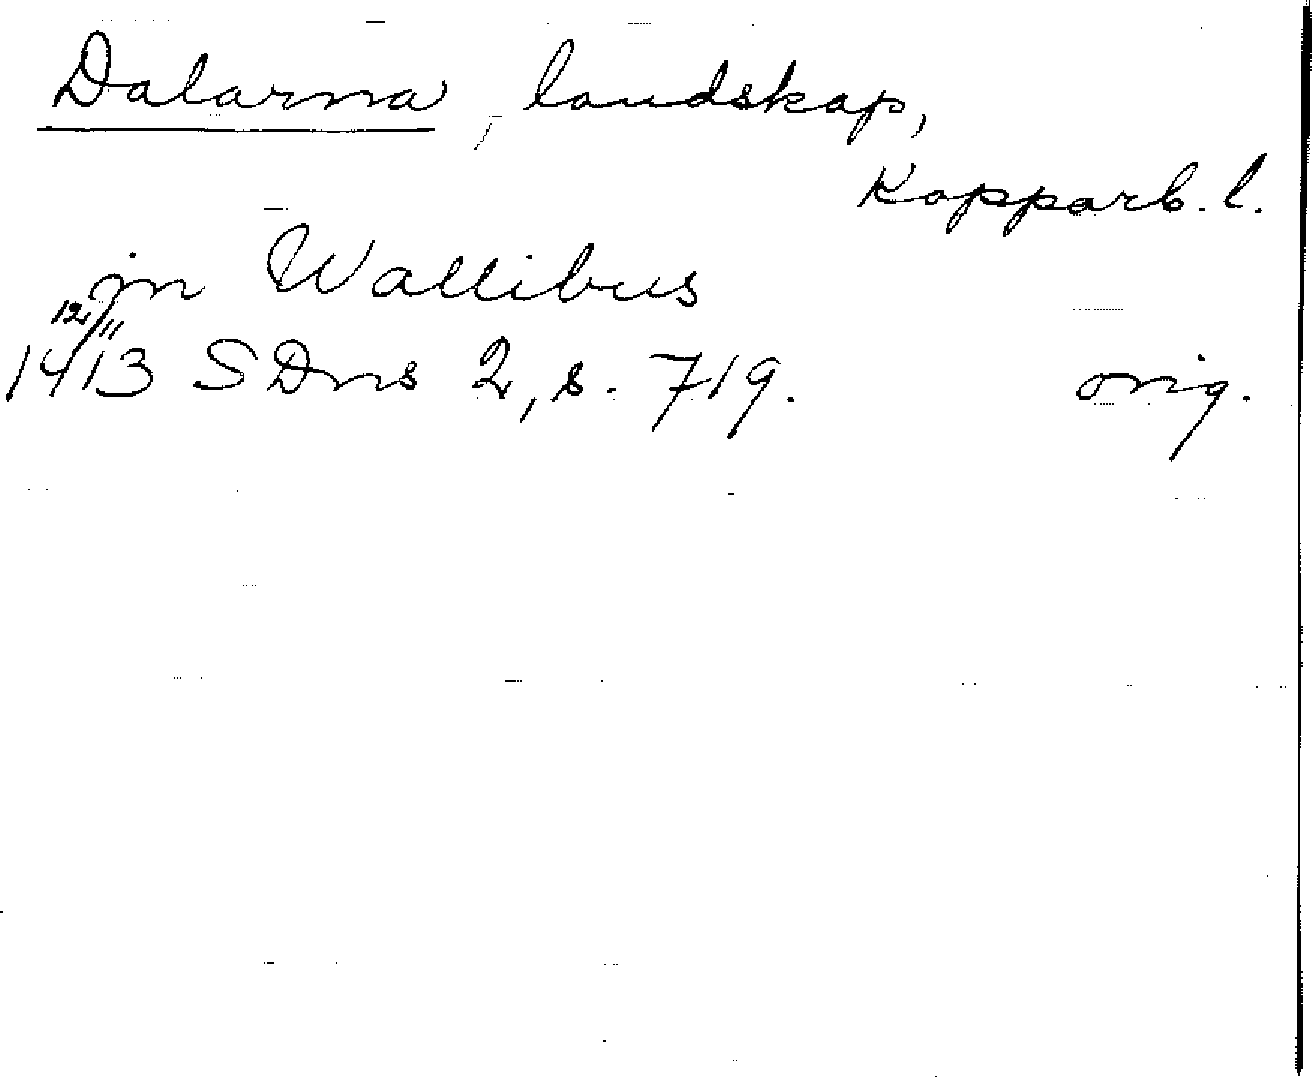 Dalarna, landskap,
Kopparb. l.
in Wallibus
12/11
1413 SDns 2, s. 719. orig.